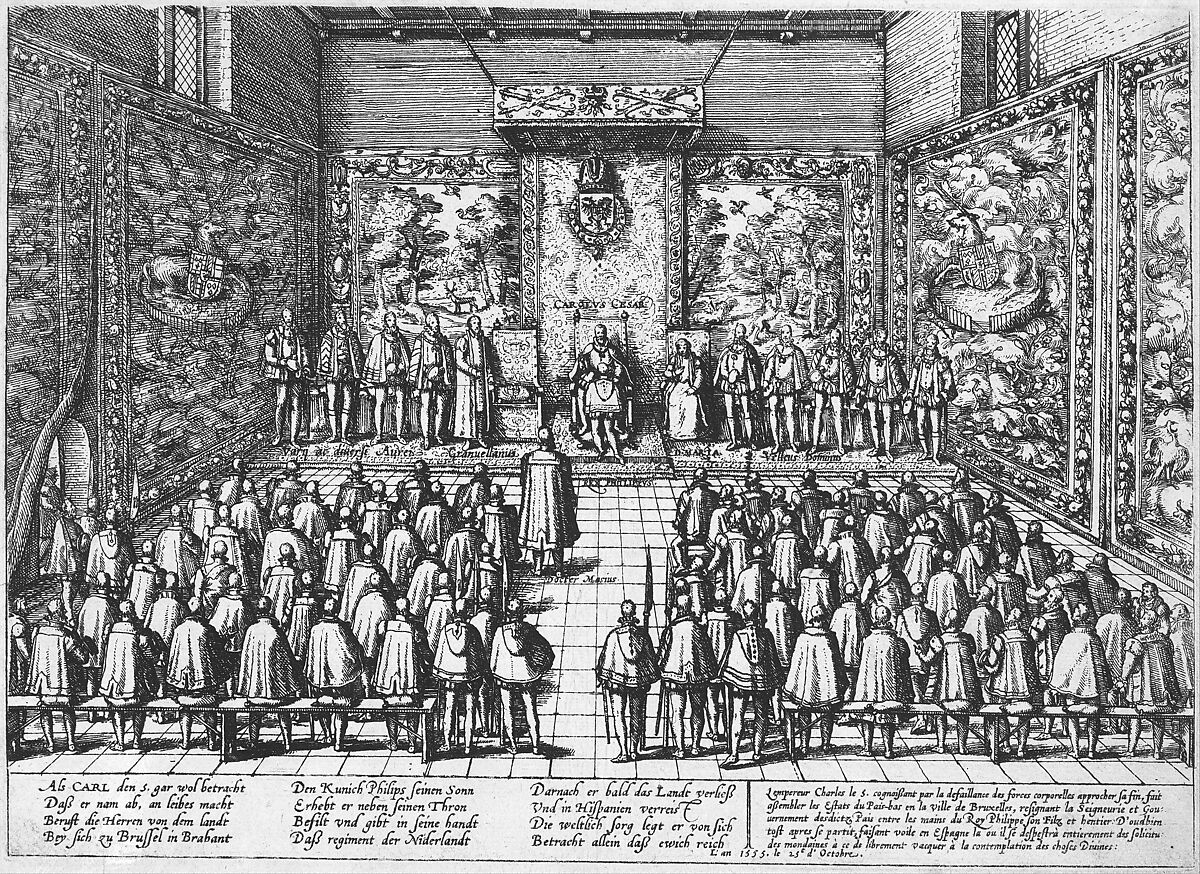 CAROLVS CESAR
Granvellanus
D. MARIA
REX PHILIPPVS
Docter Masius
Als CARL den 5. gar wol betracht
Daß er nam ab, an leibes macht
Beruft die Herren von dem landt
Bey sich zu Brussel in Brabant
Den Kunich Philips seinen Sonn
Erhebt er neben seinen Thron
Befilt vnd gibt in seine handt
Daß regiment der Niderlandt
Darnach er bald das Landt verließ
Vnd in Hispanien verreist
Die weltlich sorg legt er von sich
Betracht allein daß ewich reich
L'empereur Charles le 5. cognoißant par la defaillance des forces corporelles approcher sa fin, fait
assembler les Estats du Pais-bas en la ville de Bruxelles, resignant la Seigneurie et Gou-
uernement desdictz Pais entre les mains du Roy Philippe son Filz et heritier: D'ou bien
tost apres se partit, faisant voile en Espagne la ou il se despestra entierement des solicitu-
des mondaines à ce de librement vacquer à la contemplation des choses Diuines:
L'an 1555. le 25e d'Octobre.